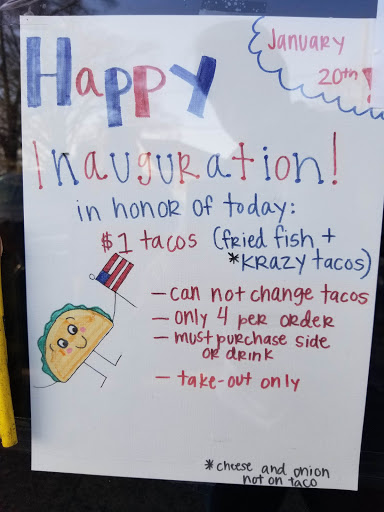 Happy
January
20th!
Inauguration!
in honor of today:
$1 tacos (fried fish +
*KRAZY tacos)
- can not change tacos
- only 4 per order
- must purchase side
or drink
- take-out only
*cheese and onion
not on taco